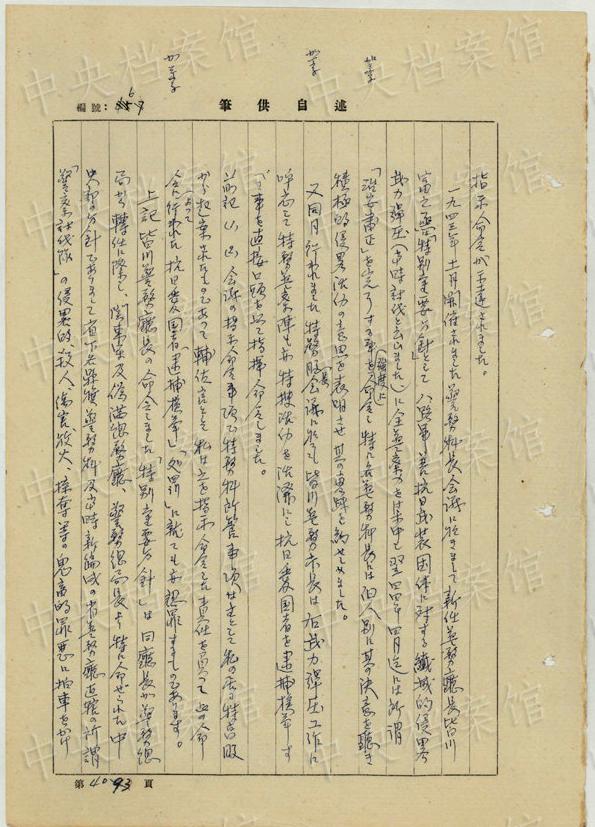 編號：
6
筆供自述
指示命令が下達されました。
一九四三年十一月開催されました警務科長会議に於きまして新任警務廳長皆川
富之丞「特別重要方針」として八路軍、並抗日武装団体に対する殲滅的侵畧
武力弾圧（当時討伐と云いました）に全並力を集中し翌四四年四月迄には所謂
「治安肅正」を完了する事を（強度に）命令し特に各警務科長には個人別に其の決意を聴き
積極的侵畧活动の意思を表明させ其の
又同月行われました特務股（長）会議に於ても皆川警務廳長は右武力弾圧工作に
呼応して特務並察陣も亦特捜活动を活溌にし抗日愛国者を逮捕検挙す
べき事を直接口頭を以て指揮命令しました。
以前記 会議の指示命令事項で特務科所管事項は主として私の舌、特高股
から起案されたものであって補佐官として私は之を指示命令した責任を負って此の命
令に（よって）行われた抗日愛国者「逮捕検挙」「処罰」に就ても亦認罪するものであります。
上記皆川警務廳長の命令しました「特別重要方針」は同廳長が警務總
局から轉任に際し、関東軍及偽満總務廳、警務總局長より特に命ぜられた中
央部の方針でありまして省下各縣旗警務科及当時新編成の省警務廳直轄の所謂
「警察討伐隊」の侵畧的、殺人、傷害、放火、掠奪等の鬼畜的罪悪に拍車をかけ
第 4093 頁
中央档案馆